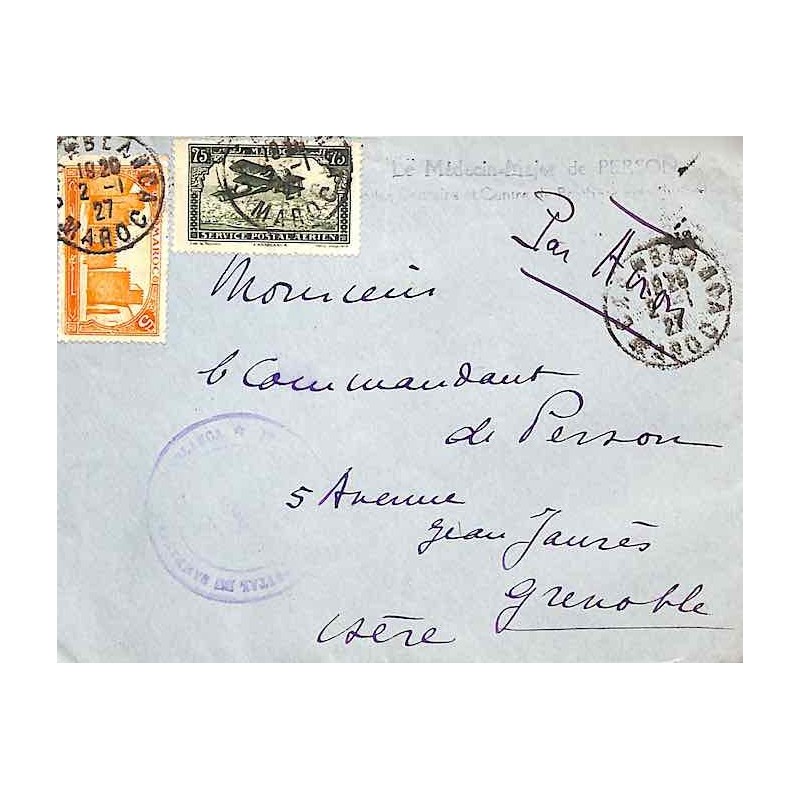 CASABLANCA
1920
2-1
27
MAROC
MAROC
5
75 MAROC 75
SERVICE POSTAL AÉRIEN
MAROC
Le Médecin-Major de PERSON
et Centre de
Par Avion
CASABLANCA
1920
2-1
27
MAROC
Monsieur
le Commandant
de Person
5 Avenue
Jean Jaurès
Grenoble
Isère